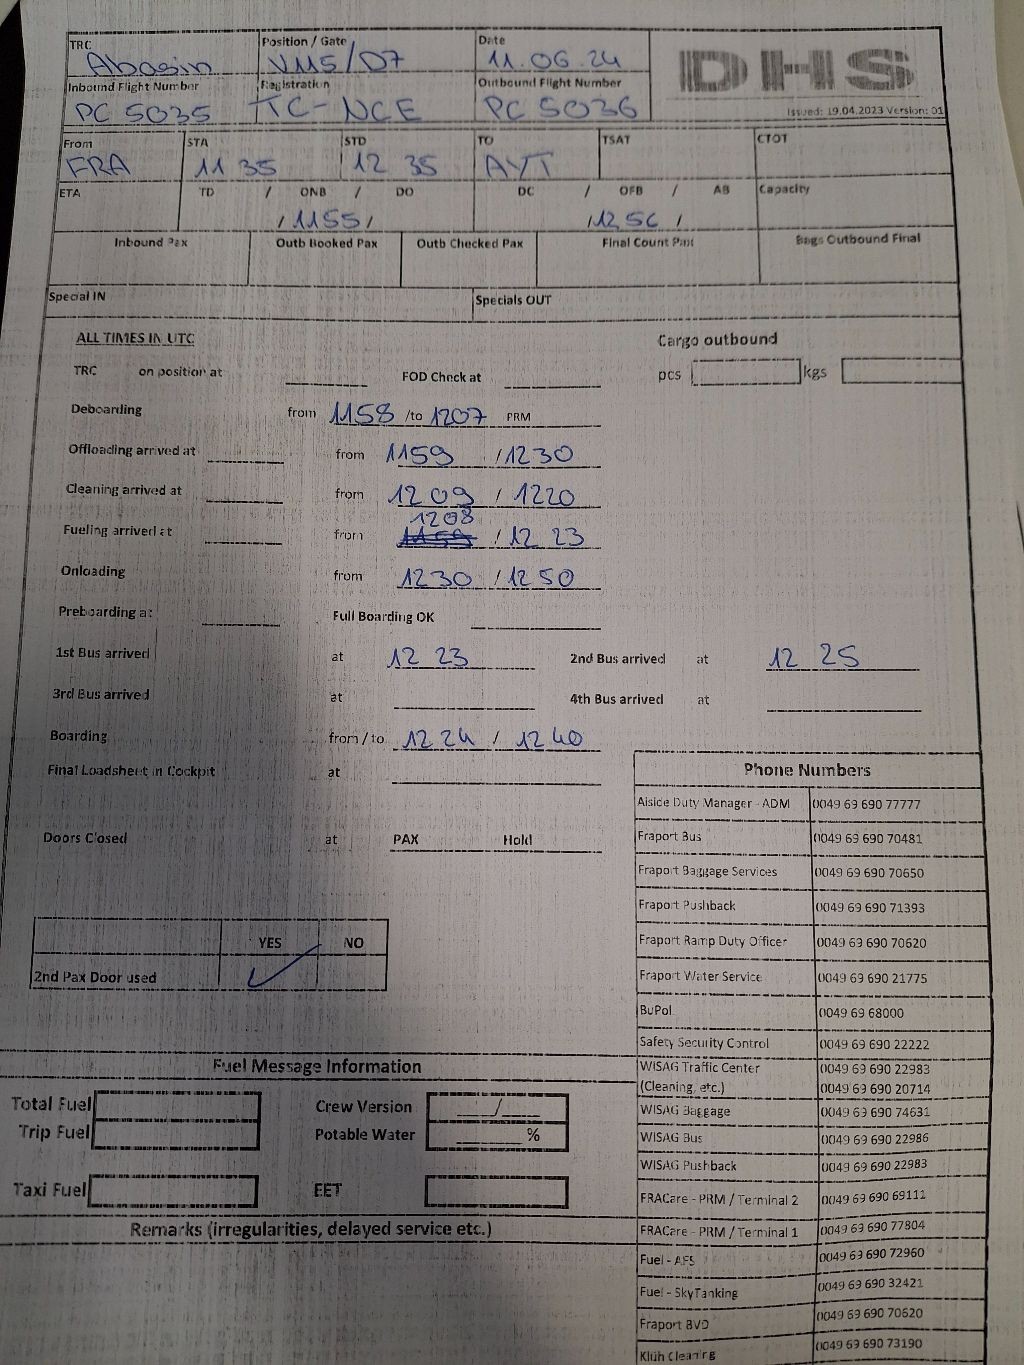 TRC Position / Gate Date
Abasin V115/D7 11.06.24
DHS
Inbound Flight Number Registration Outbound Flight Number
PC 5035 TC-NCE PC 5036
Issued: 19.04.2023 Version: 01
From STA STD TO TSAT CTOT
FRA 11 35 12 35 AYT
ETA TD / ONB / DO DC / OFB / AB Capacity
/ 1155 / / 1256 /
Inbound Pax Outb Booked Pax Outb Checked Pax Final Count Pax Bags Outbound Final
Special IN Specials OUT
ALL TIMES IN UTC Cargo outbound
TRC on position at FOD Check at pcs kgs
Deboarding from 1158 /to 1207 PRM
Offloading arrived at from 1159 / 1230
Cleaning arrived at from 1209 / 1220
1208
Fueling arrived at from 1159 / 12 23
Onloading from 1230 / 1250
Preboarding at Full Boarding OK
1st Bus arrived at 12 23 2nd Bus arrived at 12 25
3rd Bus arrived at 4th Bus arrived at
Boarding from / to 1224 / 1240
Final Loadsheet in Cockpit at
Doors Closed at PAX Hold
YES NO
2nd Pax Door used ✓
Fuel Message Information
Total Fuel Crew Version /
Trip Fuel Potable Water %
Taxi Fuel EET
Remarks (irregularities, delayed service etc.)
Phone Numbers
Aiside Duty Manager - ADM 0049 69 690 77777
Fraport Bus 0049 69 690 70481
Fraport Baggage Services 0049 69 690 70650
Fraport Pushback 0049 69 690 71393
Fraport Ramp Duty Officer 0049 69 690 70620
Fraport Water Service 0049 69 690 21775
BuPol 0049 69 68000
Safety Security Control 0049 69 690 22222
WISAG Traffic Center 0049 69 690 22983
(Cleaning, etc.) 0049 69 690 20714
WISAG Baggage 0049 69 690 74631
WISAG Bus 0049 69 690 22986
WISAG Pushback 0049 69 690 22983
FRACare - PRM / Terminal 2 0049 69 690 69111
FRACare - PRM / Terminal 1 0049 69 690 77804
Fuel - AFS 0049 69 690 72960
Fuel - SkyTanking 0049 69 690 32421
Fraport BVD 0049 69 690 70620
Klüh Cleaning 0049 69 690 73190